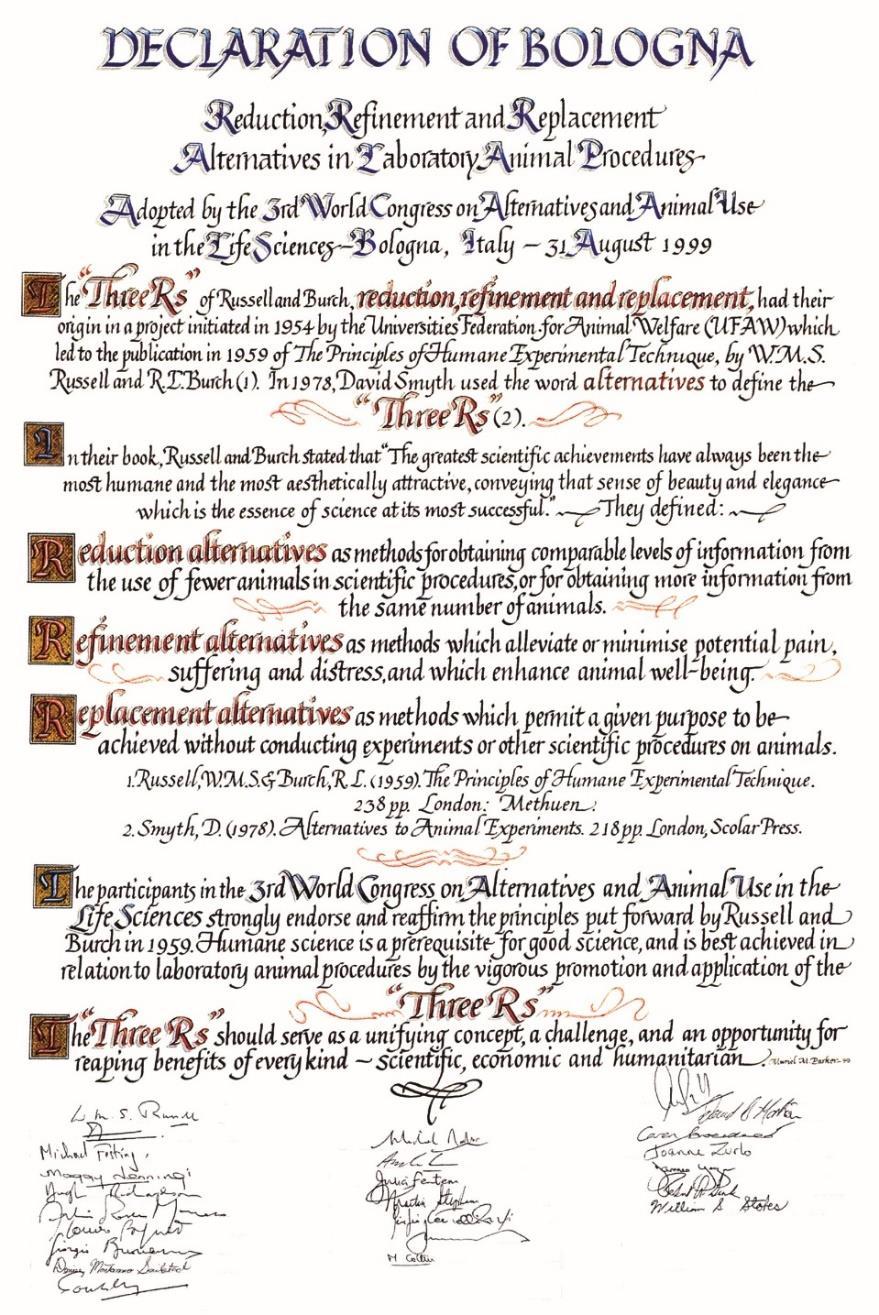 DECLARATION OF BOLOGNA
Reduction, Refinement and Replacement
Alternatives in Laboratory Animal Procedures
Adopted by the 3rd World Congress on Alternatives and Animal Use
in the Life Sciences – Bologna, Italy – 31 August 1999
The "Three Rs" of Russell and Burch, reduction, refinement and replacement, had their
origin in a project initiated in 1954 by the Universities Federation for Animal Welfare (UFAW) which
led to the publication in 1959 of The Principles of Humane Experimental Technique, by W.M.S.
Russell and R.L. Burch (1). In 1978, David Smyth used the word alternatives to define the
"Three Rs" (2).
In their book, Russell and Burch stated that "The greatest scientific achievements have always been the
most humane and the most aesthetically attractive, conveying that sense of beauty and elegance
which is the essence of science at its most successful." They defined:
Reduction alternatives as methods for obtaining comparable levels of information from
the use of fewer animals in scientific procedures, or for obtaining more information from
the same number of animals.
Refinement alternatives as methods which alleviate or minimise potential pain,
suffering and distress, and which enhance animal well-being.
Replacement alternatives as methods which permit a given purpose to be
achieved without conducting experiments or other scientific procedures on animals.
1. Russell, W.M.S. & Burch, R.L. (1959). The Principles of Humane Experimental Technique.
238 pp. London: Methuen.
2. Smyth, D. (1978). Alternatives to Animal Experiments. 218 pp. London, Scolar Press.
The participants in the 3rd World Congress on Alternatives and Animal Use in the
Life Sciences strongly endorse and reaffirm the principles put forward by Russell and
Burch in 1959. Humane science is a prerequisite for good science, and is best achieved in
relation to laboratory animal procedures by the vigorous promotion and application of the
"Three Rs"
The "Three Rs" should serve as a unifying concept, a challenge, and an opportunity for
reaping benefits of every kind – scientific, economic and humanitarian.
Muriel M. Parker
Michael
Joanne Zurlo
Julia Fentem
William S Stokes